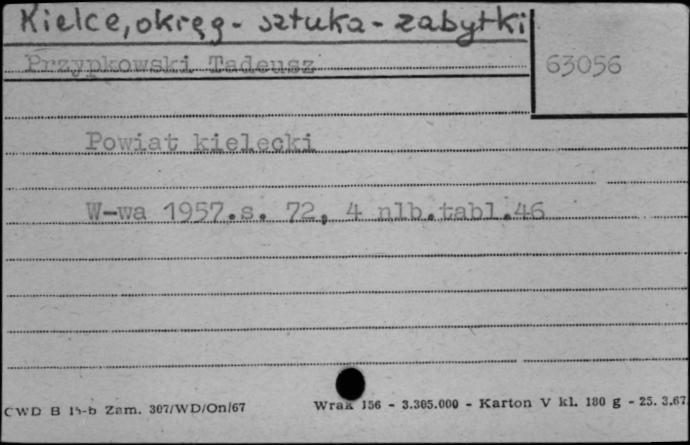 Kielce, okręg - sztuka - zabytki
Przypkowski Tadeusz
63056
Powiat kielecki
W-wa 1957.s. 72, 4 nlb.tabl.46
CWD B 15-b Zam. 307/WD/On/67
Wrak 156 - 3.305.000 - Karton V kl. 180 g - 25. 3.67